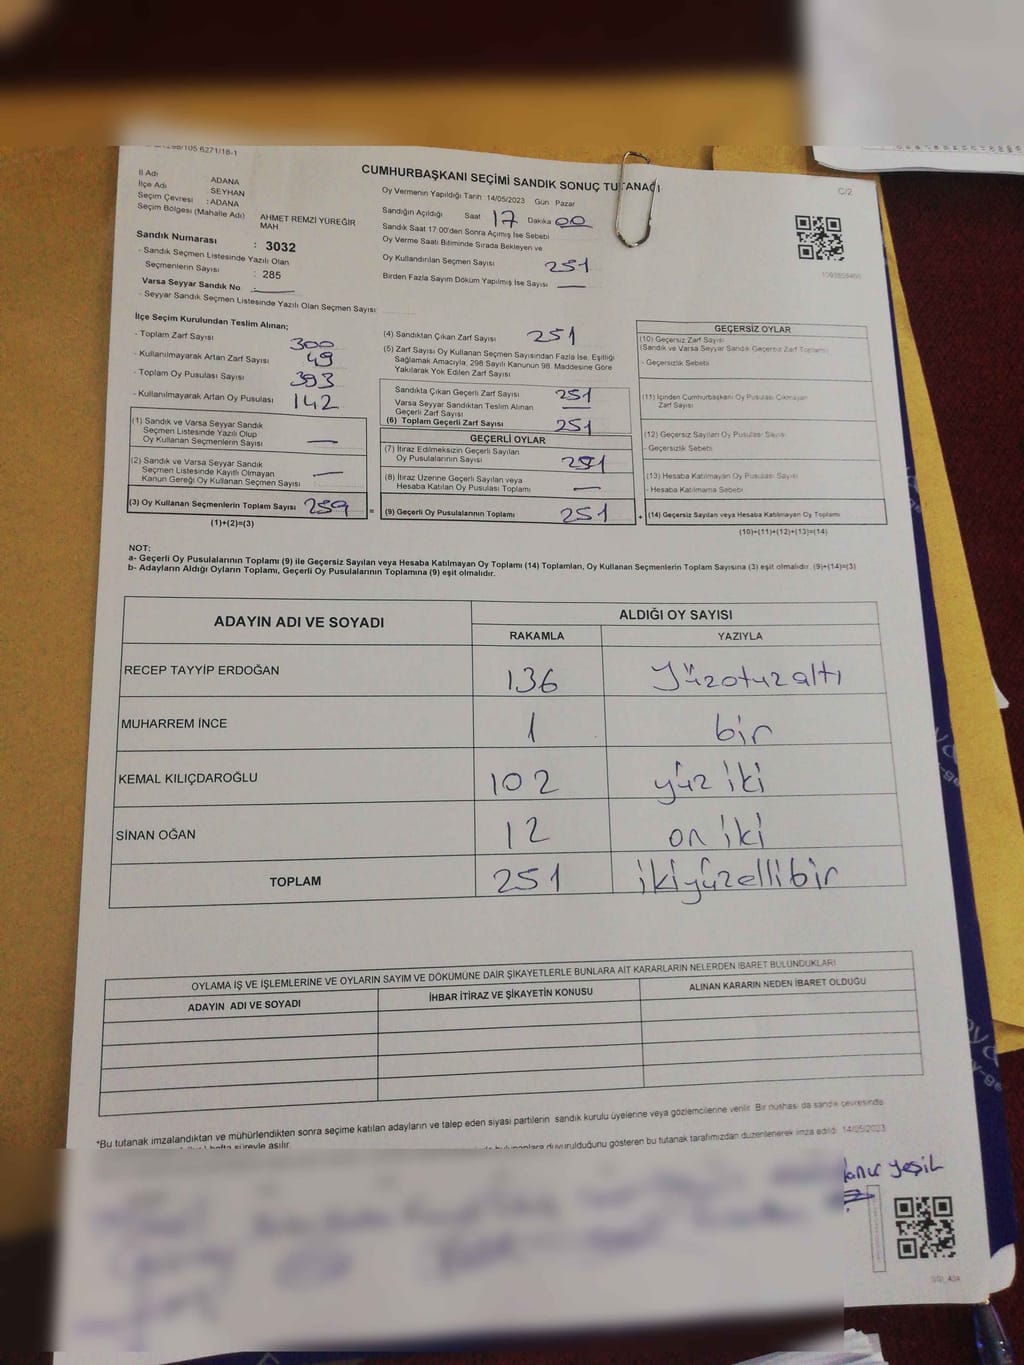 CUMHURBAŞKANI SEÇİMİ SANDIK SONUÇ TUTANAĞI
C/2
İl Adı ADANA
İlçe Adı SEYHAN
Seçim Çevresi : ADANA
Seçim Bölgesi (Mahalle Adı) AHMET REMZİ YÜREĞİR MAH
Sandık Numarası : 3032
- Sandık Seçmen Listesinde Yazılı Olan
Seçmenlerin Sayısı : 285
Varsa Seyyar Sandık No :
- Seyyar Sandık Seçmen Listesinde Yazılı Olan Seçmen Sayısı
Oy Vermenin Yapıldığı Tarih 14/05/2023 Gün Pazar
Sandığın Açıldığı Saat 17 Dakika 00
Sandık Saat 17:00'den Sonra Açımış İse Sebebi
Oy Verme Saati Bitiminde Sırada Bekleyen ve
Oy Kullandırılan Seçmen Sayısı 251
Birden Fazla Sayım Döküm Yapılmış İse Sayısı —
İlçe Seçim Kurulundan Teslim Alınan;
- Toplam Zarf Sayısı 300
- Kullanılmayarak Artan Zarf Sayısı 49
- Toplam Oy Pusulası Sayısı 393
- Kullanılmayarak Artan Oy Pusulası 142
(1) Sandık ve Varsa Seyyar Sandık
Seçmen Listesinde Yazılı Olup
Oy Kullanan Seçmenlerin Sayısı —
(2) Sandık ve Varsa Seyyar Sandık
Seçmen Listesinde Kayıtlı Olmayan
Kanun Gereği Oy Kullanan Seçmen Sayısı —
(3) Oy Kullanan Seçmenlerin Toplam Sayısı 259
(1)+(2)=(3)
(4) Sandıktan Çıkan Zarf Sayısı 251
(5) Zarf Sayısı Oy Kullanan Seçmen Sayısından Fazla İse, Eşitliği
Sağlamak Amacıyla, 298 Sayılı Kanunun 98. Maddesine Göre
Yakılarak Yok Edilen Zarf Sayısı
Sandıkta Çıkan Geçerli Zarf Sayısı 251
Varsa Seyyar Sandıktan Teslim Alınan
Geçerli Zarf Sayısı —
(6) Toplam Geçerli Zarf Sayısı 251
GEÇERLİ OYLAR
(7) İtiraz Edilmeksizin Geçerli Sayılan
Oy Pusulalarının Sayısı 251
(8) İtiraz Üzerine Geçerli Sayılan veya
Hesaba Katılan Oy Pusulası Toplamı —
= (9) Geçerli Oy Pusulalarının Toplamı 251
GEÇERSİZ OYLAR
(10) Geçersiz Zarf Sayısı
(Sandık ve Varsa Seyyar Sandık Geçersiz Zarf Toplamı)
- Geçersizlik Sebebi
(11) İçinden Cumhurbaşkanı Oy Pusulası Çıkmayan
Zarf Sayısı
(12) Geçersiz Sayılan Oy Pusulası Sayısı
- Geçersizlik Sebebi
(13) Hesaba Katılmayan Oy Pusulası Sayısı
- Hesaba Katılmama Sebebi
+ (14) Geçersiz Sayılan veya Hesaba Katılmayan Oy Toplamı
(10)+(11)+(12)+(13)=(14)
NOT:
a- Geçerli Oy Pusulalarının Toplamı (9) ile Geçersiz Sayılan veya Hesaba Katılmayan Oy Toplamı (14) Toplamları, Oy Kullanan Seçmenlerin Toplam Sayısına (3) eşit olmalıdır. (9)+(14)=(3)
b- Adayların Aldığı Oyların Toplamı, Geçerli Oy Pusulalarının Toplamına (9) eşit olmalıdır.
ADAYIN ADI VE SOYADI ALDIĞI OY SAYISI
RAKAMLA YAZIYLA
RECEP TAYYİP ERDOĞAN 136 Yüzotuzaltı
MUHARREM İNCE 1 bir
KEMAL KILIÇDAROĞLU 102 yüz iki
SİNAN OĞAN 12 on iki
TOPLAM 251 ikiyüzellibir
OYLAMA İŞ VE İŞLEMLERİNE VE OYLARIN SAYIM VE DÖKÜMÜNE DAİR ŞİKAYETLERLE BUNLARA AİT KARARLARIN NELERDEN İBARET BULUNDUKLARI
ADAYIN ADI VE SOYADI İHBAR İTİRAZ VE ŞİKAYETİN KONUSU ALINAN KARARIN NEDEN İBARET OLDUĞU
*Bu tutanak imzalandıktan ve mühürlendikten sonra seçime katılan adayların ve talep eden siyasi partilerin sandık kurulu üyelerine veya gözlemcilerine verilir. Bir nüshası da sandık çevresinde
hafta süreyle asılır.
duyurulduğunu gösteren bu tutanak tarafımızdan düzenlenerek imza edildi. 14/05/2023
yeşil